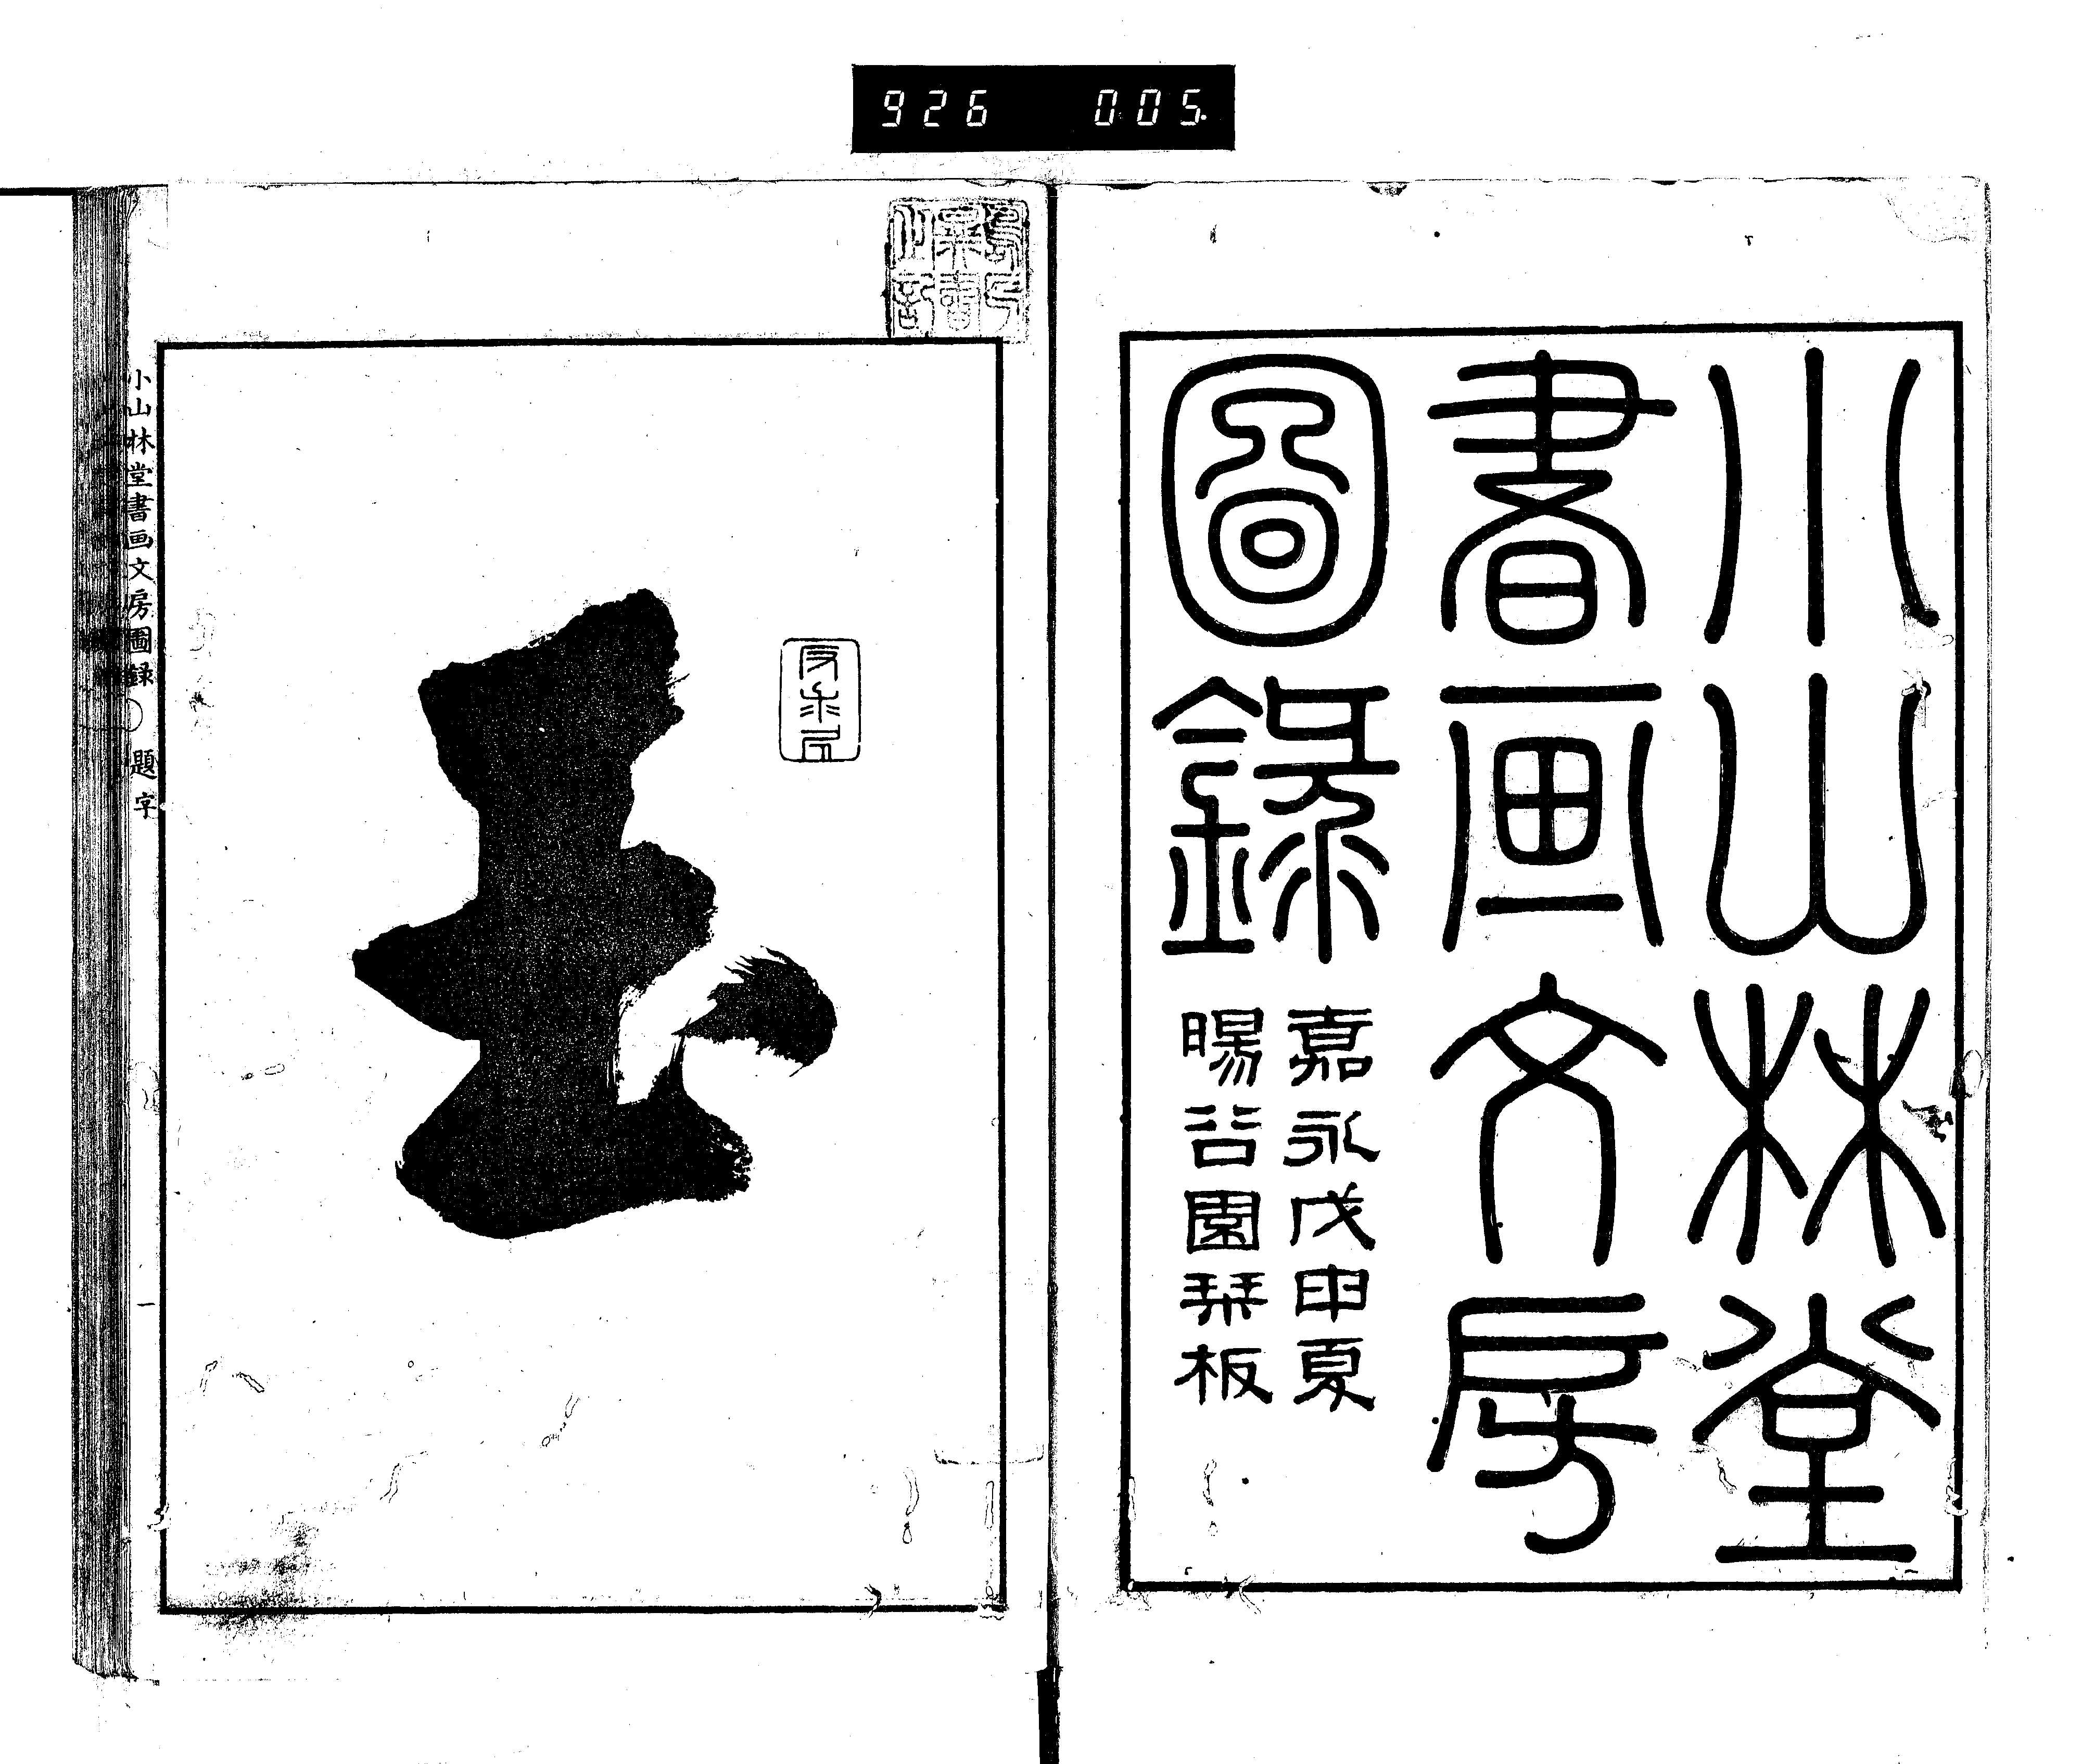 926 005
小山林堂
書画文房
圖錄
嘉永戊申夏
暘谷園琹板
玉
小山林堂書画文房圖録 題字 一